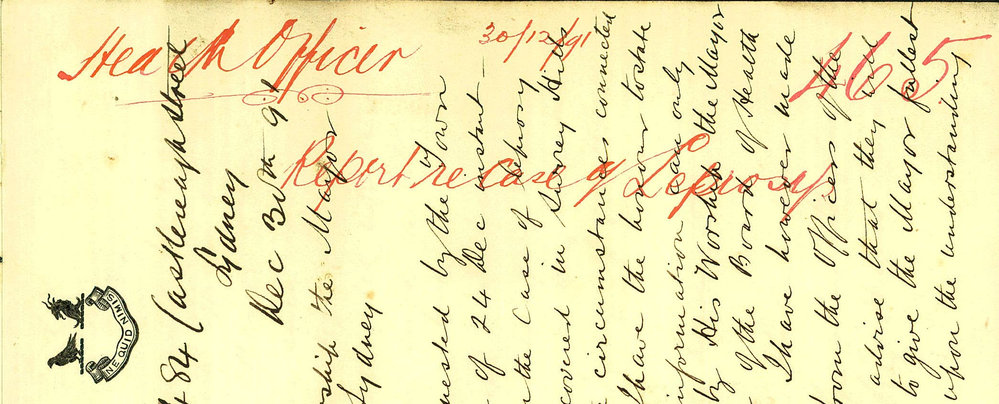 Health Officer
30/12/91
465
Report re case of Leprosy
NE QUID NIMIS
84 Castlereagh Street
Sydney
Dec 30th 91
ship the Mayor
Sydney
uested by the Town
of 24 Dec instant
the Case of Leprosy
covered in Surrey Hills
circumstances connected
I have the honour to state
nformation can only
by His Worship the Mayor
of the Board of Health
I have however made
rom the Officers of the
advise that they will
to give the Mayor fullest
upon the understanding